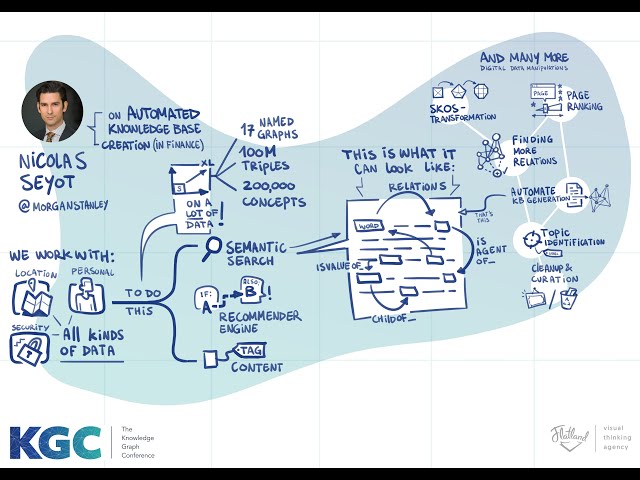 NICOLAS
SEYOT
@MORGANSTANLEY
ON AUTOMATED
KNOWLEDGE BASE
CREATION (IN FINANCE)
XL
S
17 NAMED
GRAPHS
100M
TRIPLES
200,000
CONCEPTS
ON A
LOT OF
DATA!
WE WORK WITH:
LOCATION
PERSONAL
SECURITY
All KINDS
OF DATA
TO DO
THIS
SEMANTIC
SEARCH
IF:
A
ALSO:
B!
RECOMMENDER
ENGINE
TAG
CONTENT
THIS IS WHAT IT
CAN LOOK LIKE:
RELATIONS
WORD
THAT'S
THIS
IS
AGENT
OF_
IS VALUE OF_
CHILD OF_
AND MANY MORE
DIGITAL DATA MANIPULATIONS
SKOS-
TRANSFORMATION
PAGE
PAGE
RANKING
FINDING
MORE
RELATIONS
AUTOMATE
KB GENERATION
TOPIC
IDENTIFICATION
CLEANUP &
CURATION
KGC
The
Knowledge
Graph
Conference
Flatland
visual
thinking
agency